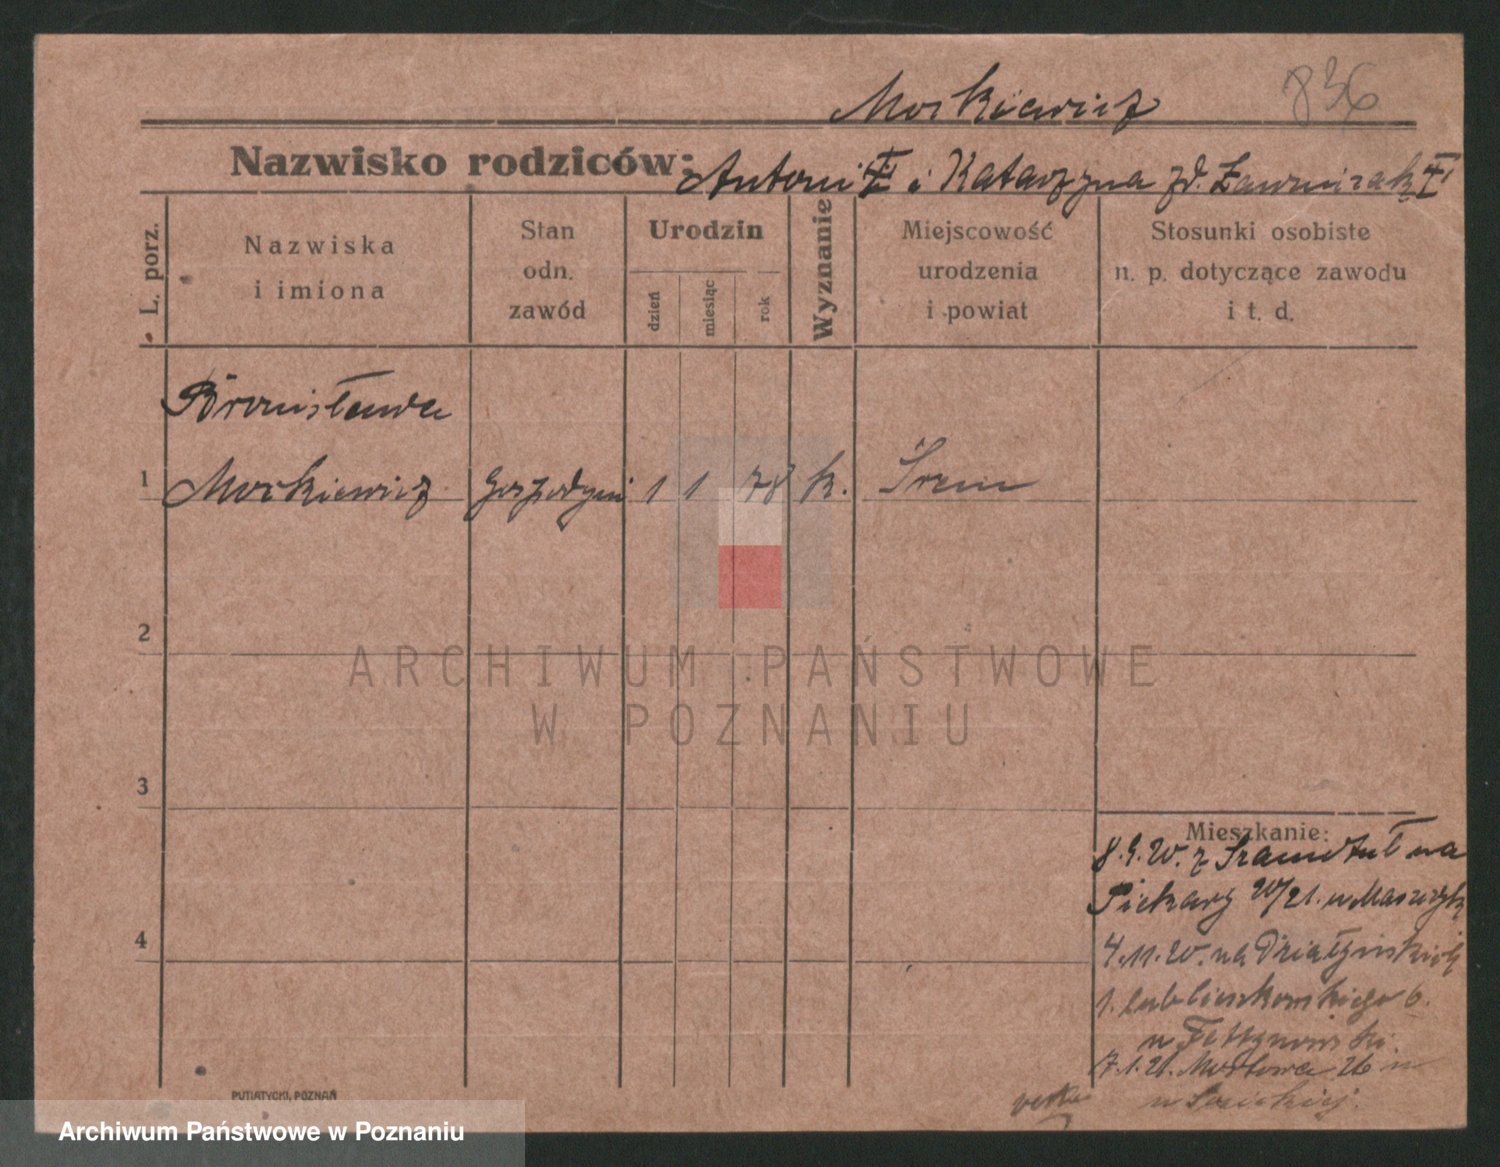 Morkiewicz 836
Nazwisko rodziców: Antoni i Katarzyna zd.
L. porz.
Nazwiska
i imiona
Stan
odn.
zawód
Urodzin
dzień
miesiąc
rok
Wyznanie
Miejscowość
urodzenia
i powiat
Stosunki osobiste
n. p. dotyczące zawodu
i t. d.
Bronisława
1 Morkiewicz Gospodyni 1 1 78 k. Śrem
2
3
4
Mieszkanie:
8.9.20. z Szamotuł na
Piekary 20/21. u
4.11.20. na Działyńskich
1. 6.
u
7.1.21. Mostowa 26
u
PUTIATYCKI, POZNAŃ
ARCHIWUM PAŃSTWOWE
W POZNANIU
Archiwum Państwowe w Poznaniu